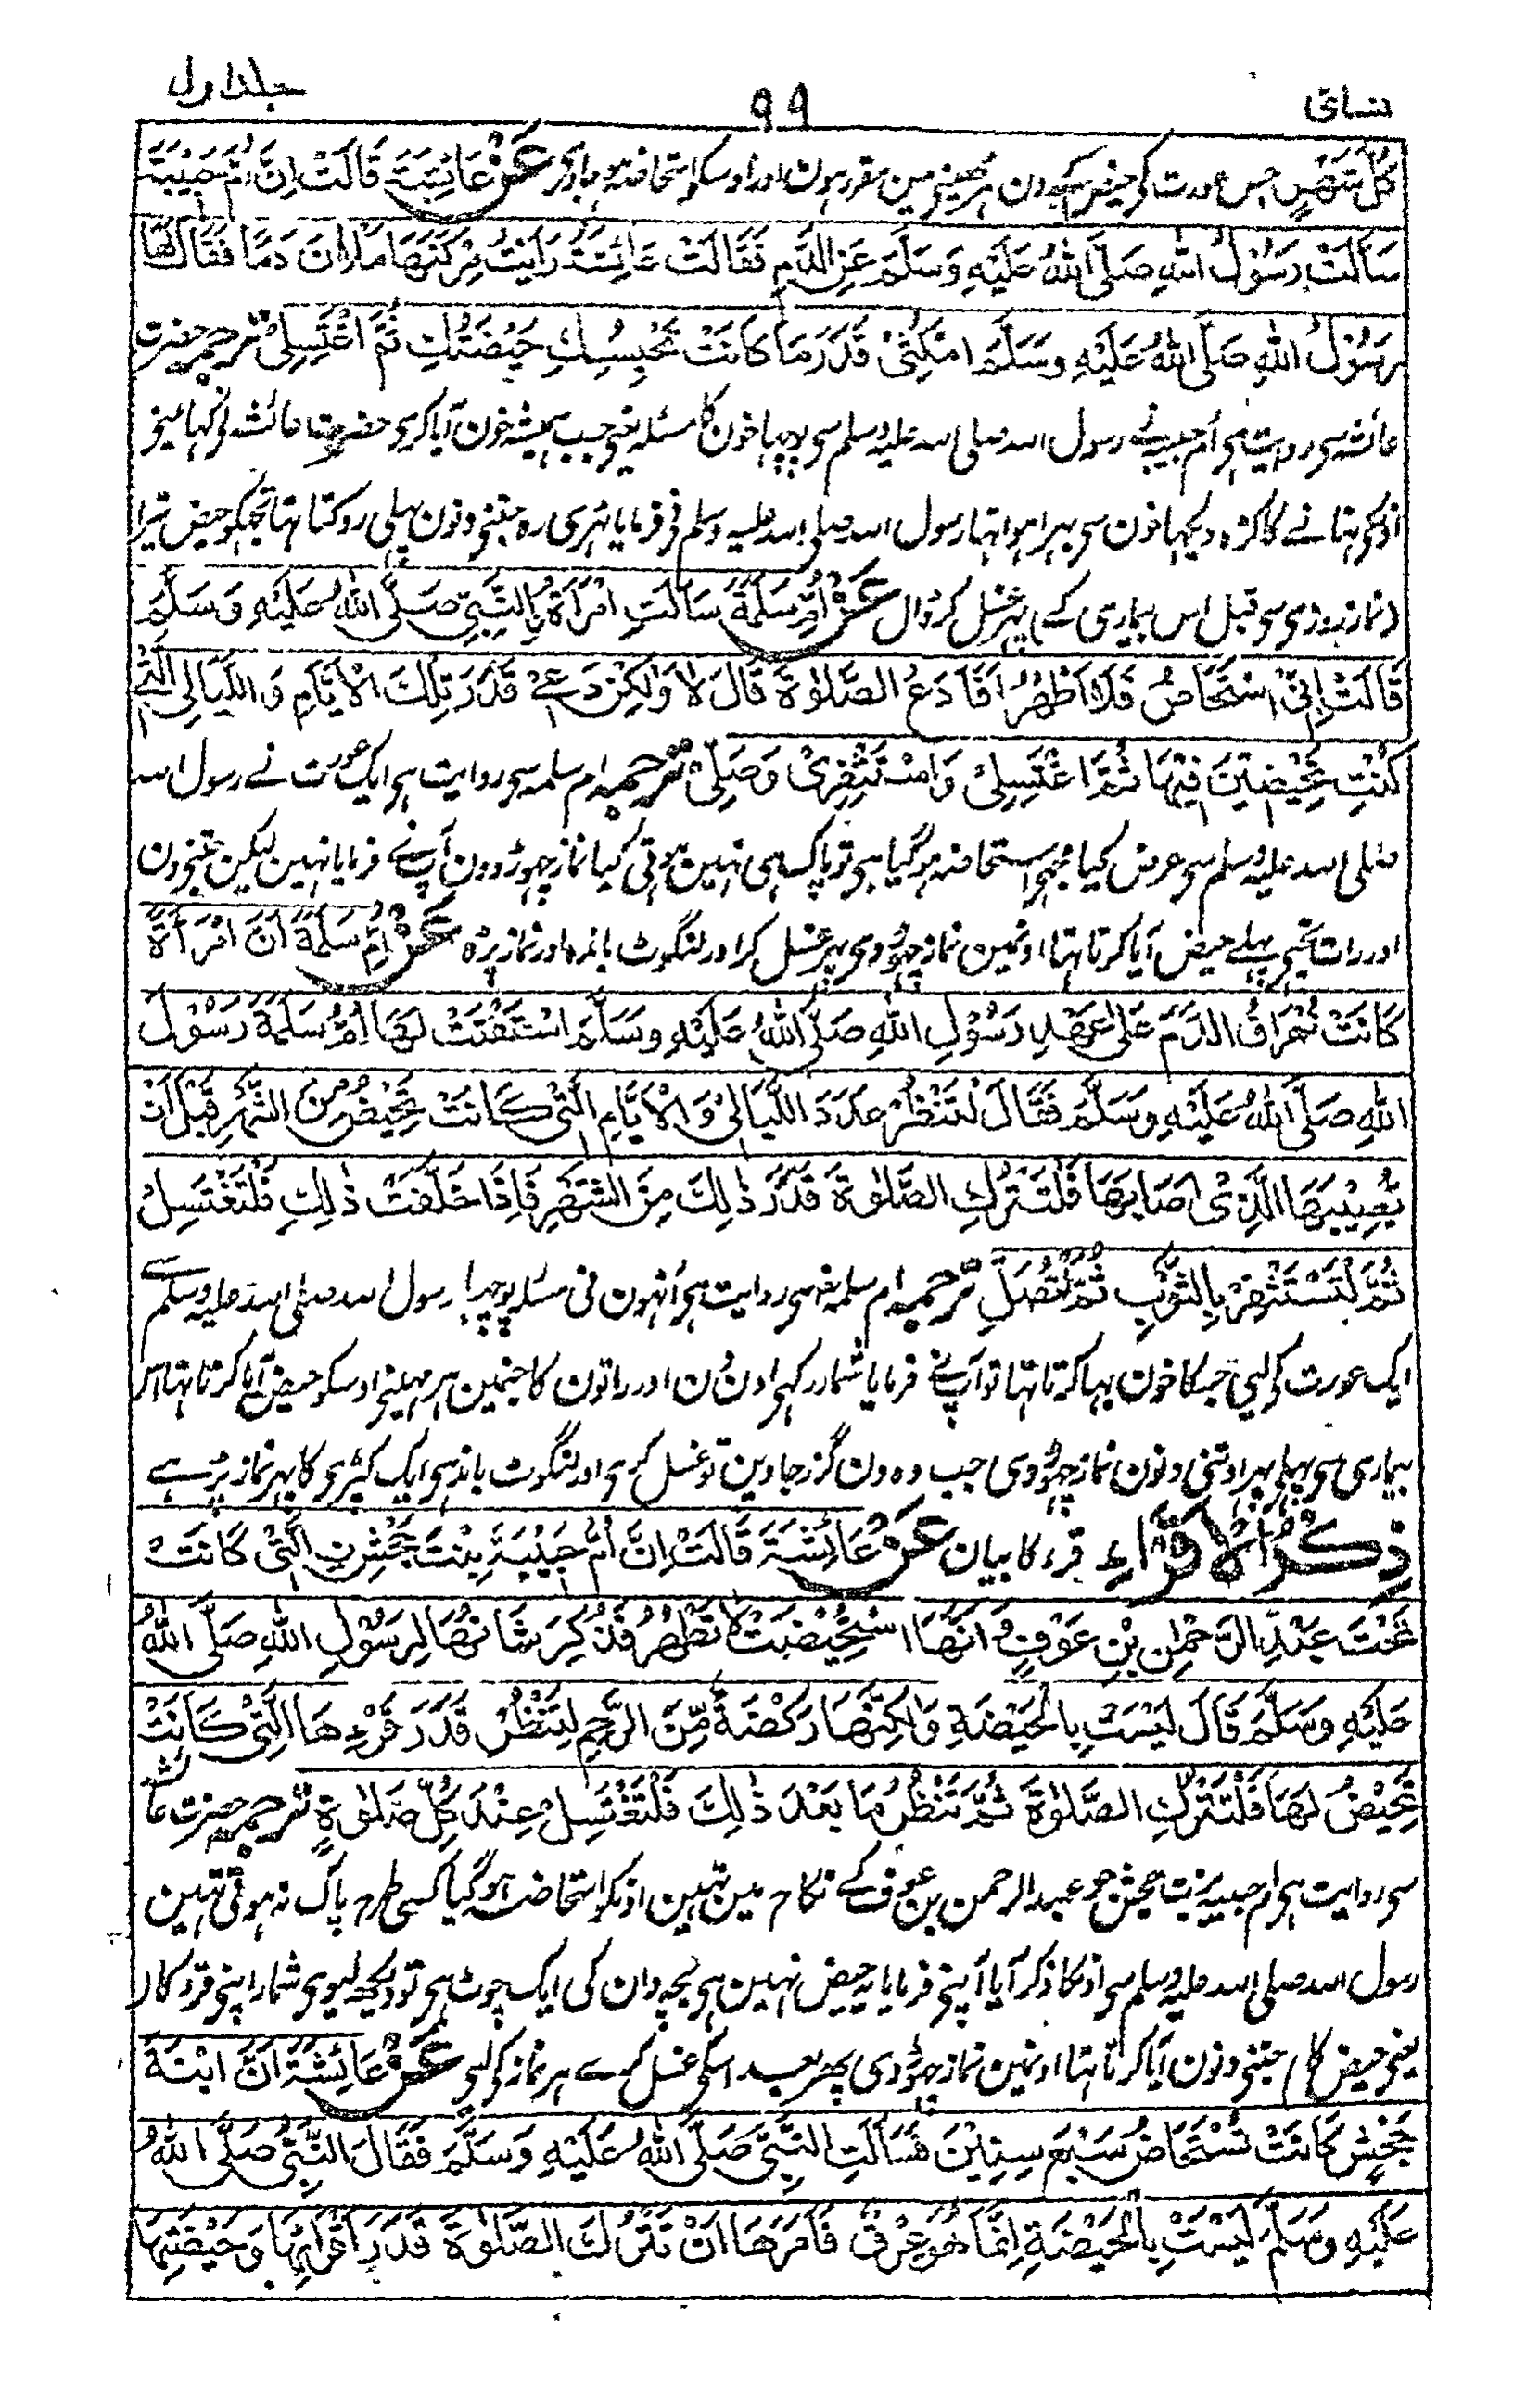 نسائی ۹۹ جلد اول
كُلَّ شَهْرٍ جس عورت کو حیض کے دن ہر مہینے مین مقرر ہون اور اوسکو استحاضہ ہو جاوے عَنْ عَائِشَةَ قَالَتْ اِنَّ اُمَّ حَبِيْبَةَ
سَأَلَتْ رَسُوْلَ اللّٰهِ صَلَّى اللّٰهُ عَلَيْهِ وَسَلَّمَ عَنِ الدَّمِ فَقَالَتْ عَائِشَةُ رَاَيْتُ مِرْكَنَهَا مَلْاٰنَ دَمًا فَقَالَ لَهَا
رَسُوْلُ اللّٰهِ صَلَّى اللّٰهُ عَلَيْهِ وَسَلَّمَ امْكُثِىْ قَدْرَ مَا كَانَتْ تَحْبِسُكِ حَيْضَتُكِ ثُمَّ اغْتَسِلِىْ ترجمہ حضرت
عائشہ سے روایت ہے اُم حبیبہ نے رسول اللہ صلی اللہ علیہ وسلم سے پوچھا خون کا مسئلہ یعنی جب ہمیشہ خون آیا کرے حضرت عائشہ نے کہا مینے
اونکے نہانے کا کڑہ دیکہا خون سے بہرا ہوا تہا رسول اللہ صلی اللہ علیہ وسلم نے فرمایا ٹہری رہ جتنے دنون پہلے روکتا تہا تجہکو حیض تیرا
(نماز روزے سے قبل اس بیماری کے) پہر غسل کر ڈال عَنْ اُمِّ سَلَمَةَ سَاَلَتِ امْرَاَةٌ بِالنَّبِىِّ صَلَّى اللّٰهُ عَلَيْهِ وَسَلَّمَ
قَالَتْ اِنِّىْ اُسْتَحَاضُ فَلَا اَطْهُرُ اَفَاَدَعُ الصَّلٰوةَ قَالَ لَا وَلٰكِنْ دَعِىْ قَدْرَ تِلْكَ الْاَيَّامِ وَاللَّيَالِى الَّتِىْ
كُنْتِ تَحِيْضِيْنَ فِيْهَا ثُمَّ اغْتَسِلِىْ وَاسْتَثْفِرِىْ وَصَلِّىْ ترجمہ ام سلمہ سے روایت ہے ایک عورت نے رسول اللہ
صلی اللہ علیہ وسلم سے عرض کیا مجہے استحاضہ ہوگیا ہے تو پاک ہی نہین ہوتی کیا نماز چہوڑ دون آپنے فرمایا نہین لیکن جتنے دن
اور رات تجہے پہلے حیض آیا کرتا تہا اونمین نماز چہوڑ دے پہر غسل کر اور لنگوٹ باندہ اور نماز پڑہ عَنْ اُمِّ سَلَمَةَ اَنَّ امْرَاَةً
كَانَتْ تُهْرَاقُ الدَّمَ عَلٰى عَهْدِ رَسُوْلِ اللّٰهِ صَلَّى اللّٰهُ عَلَيْهِ وَسَلَّمَ اسْتَفْتَتْ لَهَا اُمُّ سَلَمَةَ رَسُوْلَ
اللّٰهِ صَلَّى اللّٰهُ عَلَيْهِ وَسَلَّمَ فَقَالَ لْتَنْظُرْ عَدَدَ اللَّيَالِىْ وَالْاَيَّامِ الَّتِىْ كَانَتْ تَحِيْضُ مِنَ الشَّهْرِ قَبْلَ اَنْ
يُصِيْبَهَا الَّذِىْ اَصَابَهَا فَلْتَتْرُكِ الصَّلٰوةَ قَدْرَ ذٰلِكَ مِنَ الشَّهْرِ فَاِذَا خَلَّفَتْ ذٰلِكِ فَلْتَغْتَسِلْ
ثُمَّ لْتَسْتَثْفِرْ بِالثَّوْبِ ثُمَّ لْتُصَلِّ ترجمہ ام سلمہ سے روایت ہے اُنہون نے مسئلہ پوچہا رسول اللہ صلی اللہ علیہ وسلم سے
ایک عورت کے لیے جسکا خون بہا کرتا تہا تو آپنے فرمایا شمار رکہے اون دن اور راتون کا جنمین ہر مہینے اوسکو حیض آیا کرتا تہا اس
بیماری سے پہلے پہر اوتنے دنون نماز چہوڑ دے جب وہ دن گزر جاوین تو غسل کرے اور لنگوٹ باندہے ایک کپڑے کا پہر نماز پڑہے
ذِكْرُ الْاَقْرَاءِ قرء کا بیان عَنْ عَائِشَةَ قَالَتْ اِنَّ اُمَّ حَبِيْبَةَ بِنْتَ جَحْشِنِ الَّتِىْ كَانَتْ
تَحْتَ عَبْدِ الرَّحْمٰنِ بْنِ عَوْفٍ اَنَّهَا اسْتُحِيْضَتْ لَا تَطْهُرُ فَذُكِرَ شَانُهَا لِرَسُوْلِ اللّٰهِ صَلَّى اللّٰهُ
عَلَيْهِ وَسَلَّمَ قَالَ لَيْسَتْ بِالْحَيْضَةِ وَلٰكِنَّهَا رَكْضَةٌ مِّنَ الرَّحِمِ لِتَنْظُرْ قَدْرَ قَرْءِهَا الَّتِىْ كَانَتْ
تَحِيْضُ لَهَا فَلْتَتْرُكِ الصَّلٰوةَ ثُمَّ تَنْظُرُ مَا بَعْدَ ذٰلِكَ فَلْتَغْتَسِلْ عِنْدَ كُلِّ صَلٰوةٍ ترجمہ حضرت عائشہ
سے روایت ہے ام حبیبہ بنت جحش جو عبد الرحمن بن عوف کے نکاح مین تہین اونکو استحاضہ ہوگیا کسی طرح پاک نہ ہوتی تہین
رسول اللہ صلی اللہ علیہ وسلم سے اونکا ذکر آیا آپنے فرمایا یہ حیض نہین ہے بچہ دان کی ایک چوٹ ہے تو دیکھ لیوے شمار اپنے قرء کا (
یعنی حیض کا) جتنے دنون آیا کرتا تہا اونمین نماز چہوڑ دے پھر بعد اسکے غسل کرے ہر نماز کے لیے عَنْ عَائِشَةَ اَنَّ ابْنَةَ
جَحْشٍ كَانَتْ تُسْتَحَاضُ سَبْعَ سِنِيْنَ فَسَاَلَتِ النَّبِىَّ صَلَّى اللّٰهُ عَلَيْهِ وَسَلَّمَ فَقَالَ النَّبِىُّ صَلَّى اللّٰهُ
عَلَيْهِ وَسَلَّمَ لَيْسَتْ بِالْحَيْضَةِ اِنَّمَا هُوَ عِرْقٌ فَاَمَرَهَا اَنْ تَتْرُكَ الصَّلٰوةَ قَدْرَ اَقْرَائِهَا وَحَيْضَتِهَا